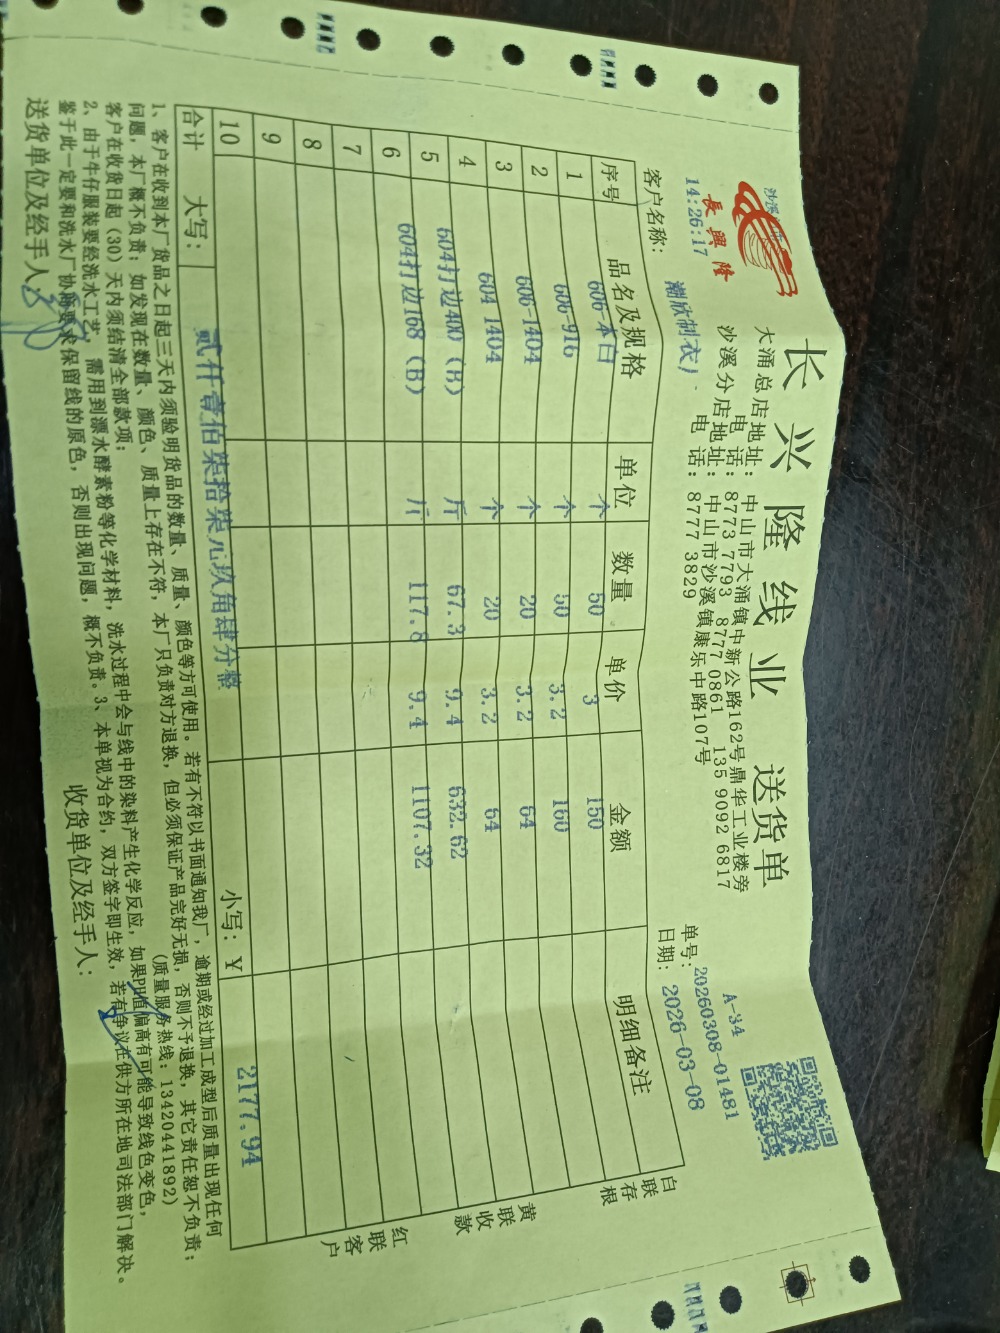 沙溪
長興隆
14:26:17
长兴隆线业 送货单
大涌总店地址:中山市大涌镇中新公路162号鼎华工业楼旁
电 话:8773 7793 8777 0861 135 9092 6817
沙溪分店地址:中山市沙溪镇康乐中路107号
电 话:8777 3829
A-34
单号:20260308-01481
日期:2026-03-08
客户名称:潮欣制衣)
序号 品名及规格 单位 数量 单价 金额 明细备注
1 606-本白 个 50 3 150
2 606-916 个 50 3.2 160
3 606-1404 个 20 3.2 64
4 604 1404 个 20 3.2 64
5 604打边400 (B) 斤 67.3 9.4 632.62
6 604打边168 (B) 斤 117.8 9.4 1107.32
7
8
9
10
合计 大写: 贰仟壹佰柒拾柒元玖角肆分整 小写:¥ 2177.94
白联存根
黄联收款
红联客户
1、客户在收到本厂货品之日起三天内须验明货品的数量、质量、颜色等方可使用。若有不符以书面通知我厂,逾期或经过加工成型后质量出现任何
问题,本厂概不负责;如发现在数量、颜色、质量上存在不符,本厂只负责对方退换,但必须保证产品完好无损,否则不予退换,其它责任恕不负责;
客户在收货日起(30)天内须结清全部款项; (质量服务热线:13420441892)
2、由于牛仔服装要经洗水工艺,需用到漂水酵素粉等化学材料,洗水过程中会与线中的染料产生化学反应,如果PH值偏高有可能导致线色变色,
鉴于此一定要和洗水厂协商要求保留线的原色,否则出现问题,概不负责。3、本单视为合约,双方签字即生效,若有争议在供方所在地司法部门解决。
送货单位及经手人: 收货单位及经手人: